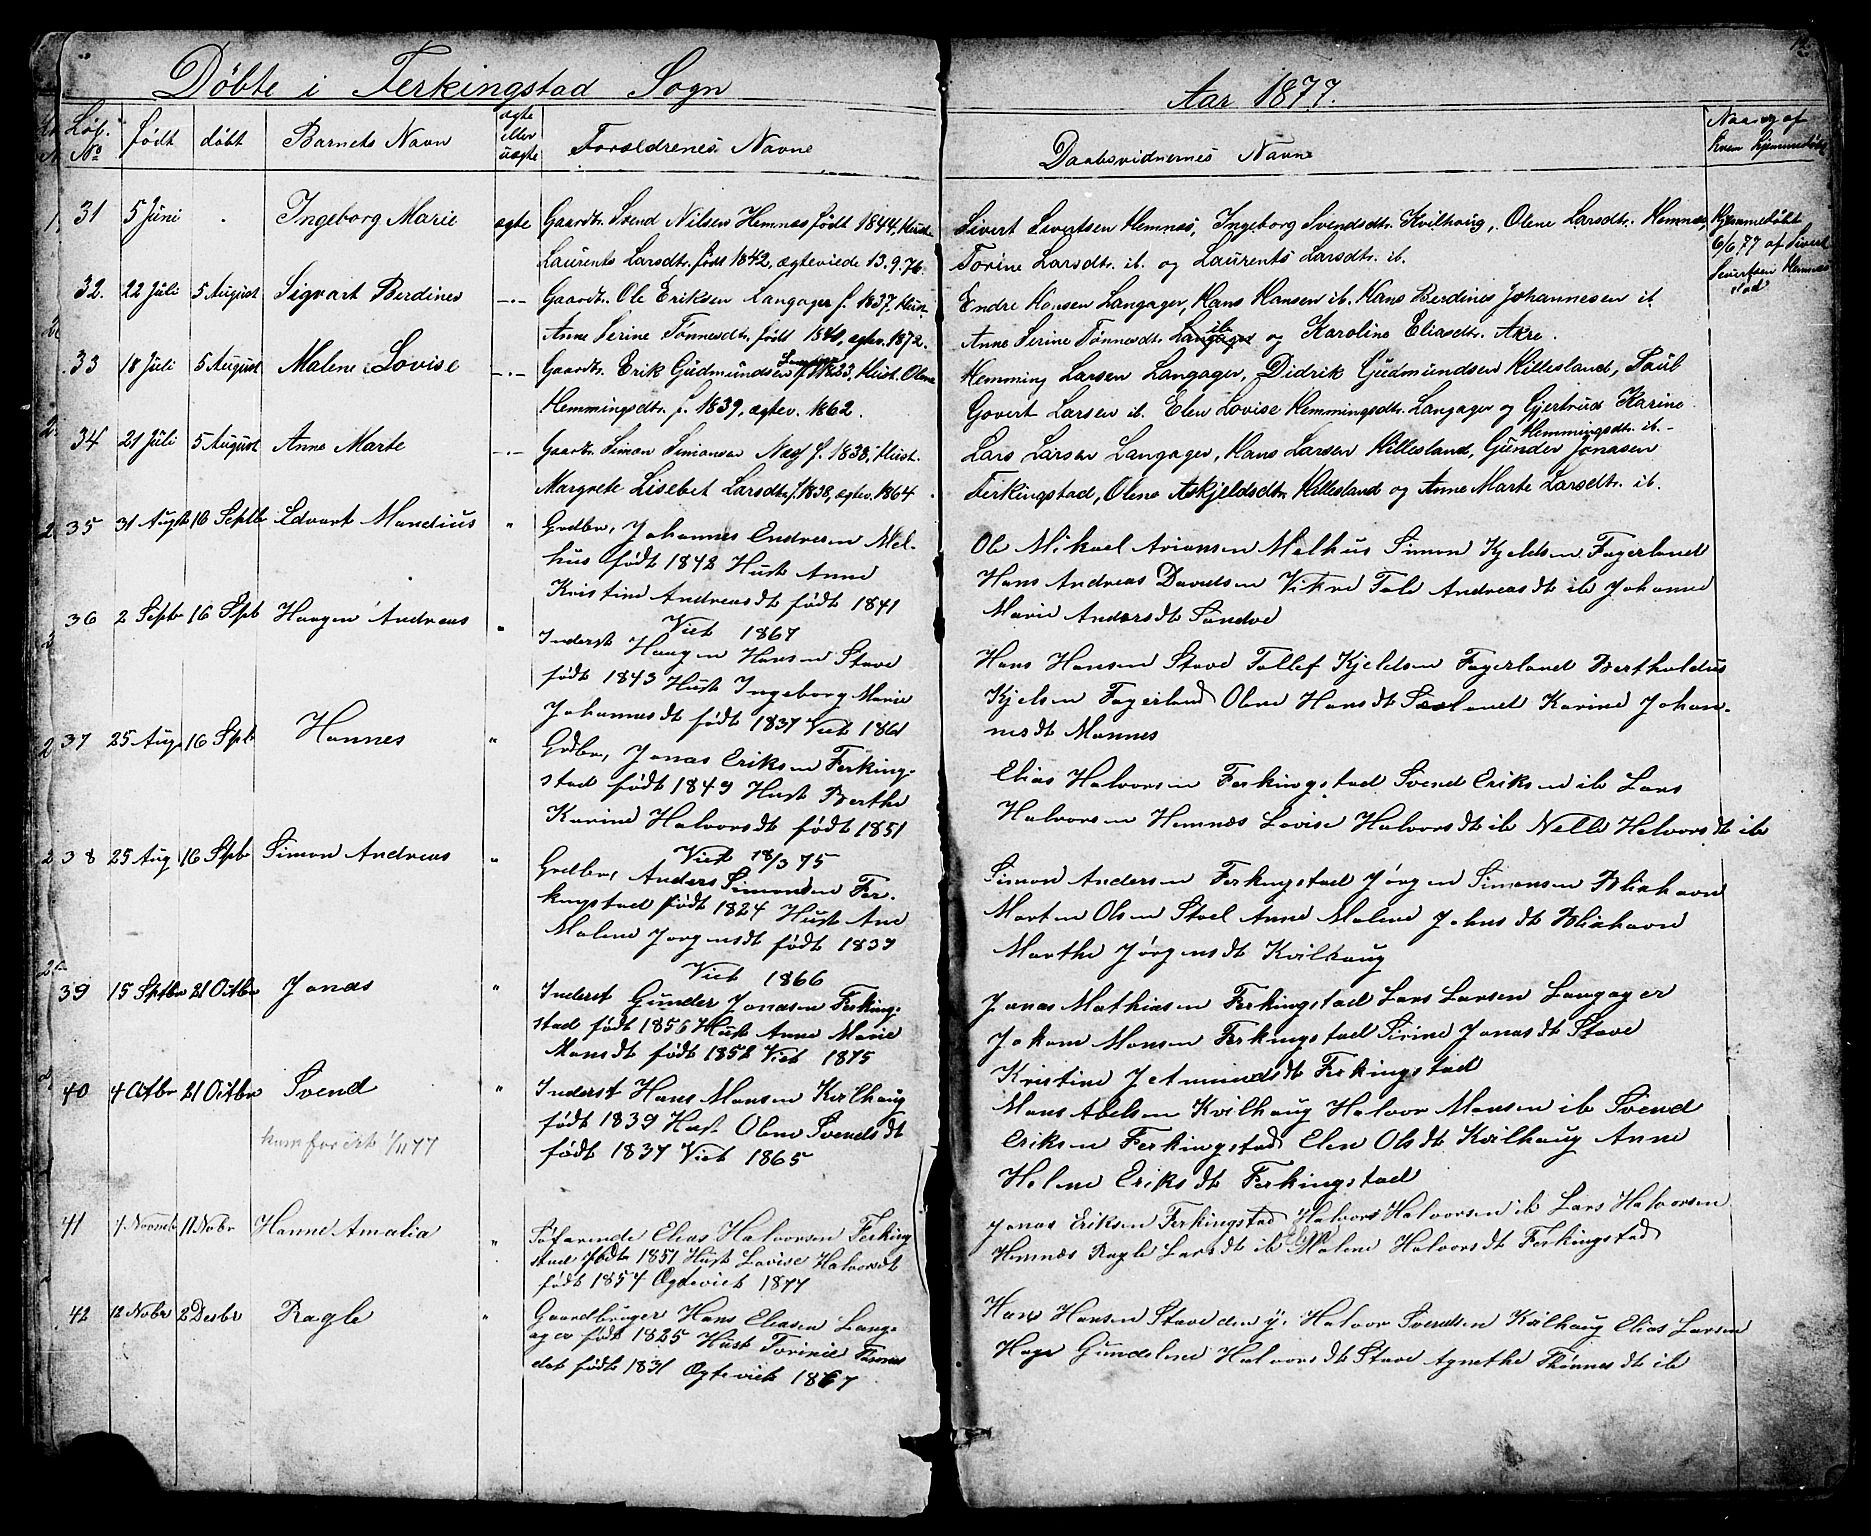 Døbte i Ferkingstad Sogn
Aar 1877.
Løb. No
født
døbt
Barnets Navn
ægte eller uægte
Forældrenes Navne
Daabsvidnernes Navne
31 5 Juni Ingeborg Marie ægte Gaardbr. Svend Nilsen Hemnæs født 1844, Hust.
Laurents Larsdtr. født 1842, ægteviede 13.9.76.
Sivert Sivertsen Hemnæs, Ingeborg Svendsdtr. Kvilhaug, Olene Larsdtr. Hemnæs,
Torine Larsdtr. ib. og Laurents Larsdtr. ib.
Hjemmedøbt
6/6 77 af Sivert
Sivertsen Hemnæs
32. 22 Juli 5 August Sigvart Berdines -"- Gaardbr. Ole Eriksen Langager f. 1837, Hust.
Anne Serine Tønnesdtr. født 1840, ægtev. 1872.
Endre Hansen Langager, Hans Hansen ib. Hans Berdines Johannesen ib
Anne Serine Tønnesdtr. Langager ib og Karoline Eliasdtr. Akre.
33 18 Juli 5 August Malene Lovise -"- Gaardbr. Erik Gudmundsen Langager f. 1833, Hust. Olene
Hemmingsdtr. f. 1839, ægtev. 1862.
Hemming Larsen Langager, Didrik Gudmundsen Hillesland, Poul
Govert Larsen ib. Elen Lovise Hemmingsdtr. Langager og Gjertrud Karine
Hemmingsdtr. ib.
34 21 Juli 5 August Anne Marte -"- Gaardbr. Simon Simonsen Næs f. 1838, Hust.
Margrete Lisebet Larsdtr. f. 1838, ægtev. 1864
Lars Larsen Langager, Hans Larsen Hillesland, Gunder Jonasen
Ferkingstad, Olene Askjeldsdtr. Hillesland og Anne Marte Larsdtr. ib.
35 31 Augst 16 Septbr Edvart Mandius " Grdbr, Johannes Endresen Mel-
hus født 1842 Hust Anne
Kristine Andreasdt født 1841
Viet 1867
Ole Mikael Ariansen Melhus Simon Kjeldsen Fagerland
Hans Andreas Davidsen Vikre Tale Andreasdt ib Johanne
Marie Andersdt Sandve
36 2 Sepbr 16 Spb Haagen Andreas " Inderst Haagen Hansen Stave
født 1843 Hust Ingeborg Marie
Johannesdt født 1837 Viet 1861
Hans Hansen Stave Tollef Kjeldsen Fagerland Bertholdus
Kjelsen Fagerland Olene Hansdt Søeland Karine Johan-
nesdt Mannes
37 25 Aug 16 Spb Hannes " Grdbr, Jonas Eriksen Ferking-
stad født 1849 Hust Berthe
Karine Halvorsdt født 1851
Viet 18/3 75
Elias Halvorsen Ferkingstad Svend Eriksen ib Lars
Halvorsen Hemnæs Lovise Halvorsdt ib Nelle Halvorsdt ib
38 25 Aug 16 Spb Simon Andreas " Grdbr, Anders Simonsen Fer-
kingstad født 1824 Hust Ane
Malene Jørgensdt født 1837
Viet 1866
Simon Andersen Ferkingstad Jørgen Simonsen Blikhavn
Morten Olsen Stol Anne Malene Johnsdt Blikhavn
Marthe Jørgensdt Kvilhaug
39 15 Sptbr 21 Octbr Jonas " Inderst Gunder Jonasen Ferking-
stad født 1856 Hust Anne Marie
Monsdt født 1852 Viet 1875
Jonas Mathiasen Ferkingstad Lars Larsen Langager
Johan Monsen Ferkingstad Sirine Jonasdt Stave
Kristine Jetmundsdt Ferkingstad
40 4 Octbr 21 Octbr Svend " Inderst Hans Monsen Kvilhaug
født 1839 Hust Olene Svendsdt
født 1837 Viet 1865
1/11 77
Mons Abelsen Kvilhaug Halvor Monsen ib Svend
Eriksen Ferkingstad Elen Olsdt Kvilhaug Anne
Helene Eriksdt Ferkingstad
41 11 Nobr Hanne Amalia " Søfarende Elias Halvorsen Ferking
stad født 1851 Hust Lovise Halvorsdt
født 1854 Ægteviet 1877
Jonas Eriksen Ferkingstad Halvor Halvorsen ib Lars Halvorsen
Hemnæs Ragle Larsdt ib Malene Halvorsdt Ferkingstad
42 12 Nobr 2 Desbr Ragle " Gaardbruger Hans Eliasen Lang-
ager født 1825 Hust Torine Tønnes
dat født 1831 Ægteviet 1867
Hans Hansen Stave den y. Halvor Svendsen Kvilhaug Elias Larsen
Hage Gundeline Halvorsdt Stave Agnethe Tønnesdt ib